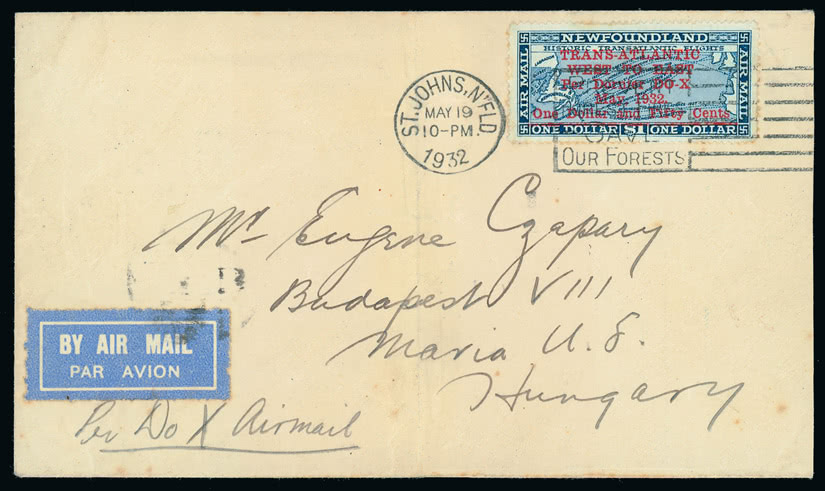 NEWFOUNDLAND
HISTORIC TRANSATLANTIC FLIGHTS
AIR MAIL
AIR MAIL
TRANS-ATLANTIC
WEST TO EAST
Per Dornier DO-X
May, 1932.
One Dollar and Fifty Cents
ONE DOLLAR $1 ONE DOLLAR
ST. JOHNS, N'FLD.
MAY 19
10-PM.
1932
SAVE
OUR FORESTS
Mr Eugene Czapary
Budapest VIII
Maria U. 8.
Hungary
BY AIR MAIL
PAR AVION
Per Do X Airmail